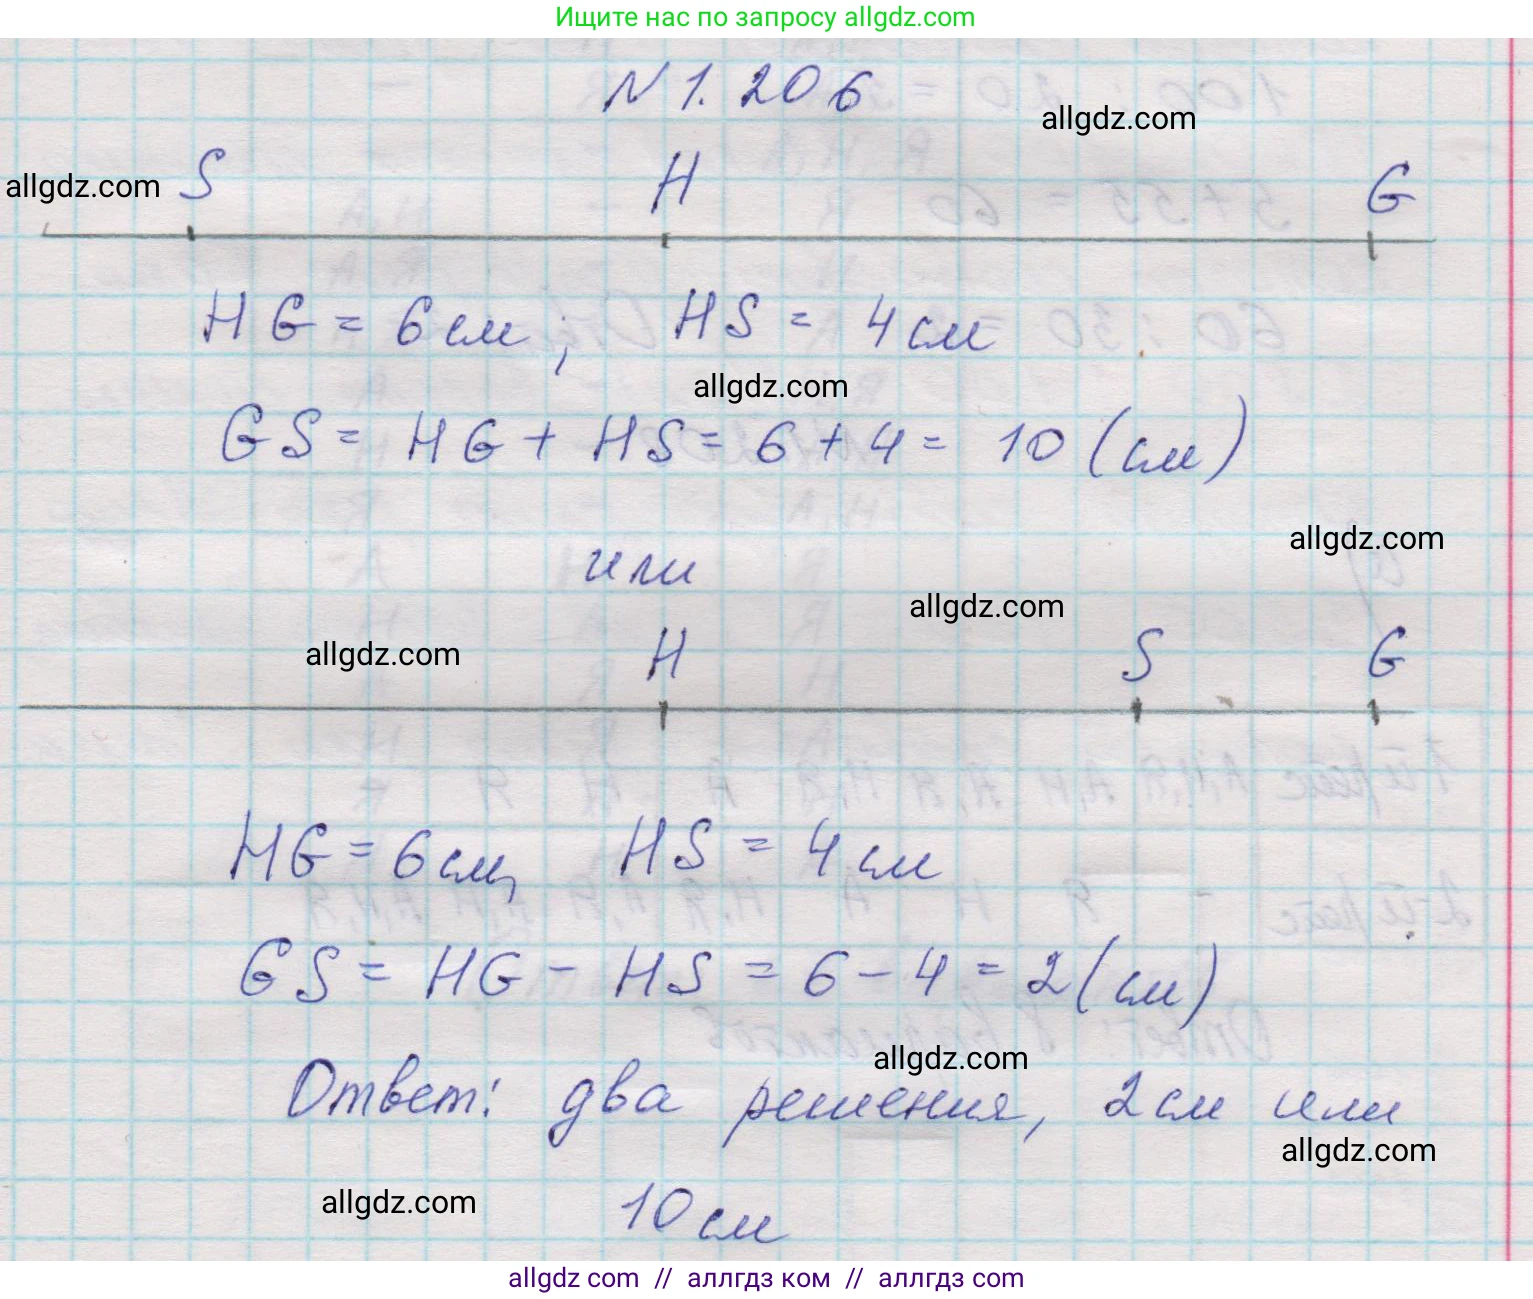 Ищите нас по запросу allgdz.com
N 1. 206
allgdz.com
allgdz.com
S H G
HG = 6 см; HS = 4 см
allgdz.com
GS = HG + HS = 6 + 4 = 10 (см)
allgdz.com
или
allgdz.com
allgdz.com
H S G
HG = 6 см, HS = 4 см
GS = HG - HS = 6 - 4 = 2 (см)
allgdz.com
Ответ: два решения, 2 см или
allgdz.com
allgdz.com
10 см
allgdz com // аллгдз ком // аллгдз com